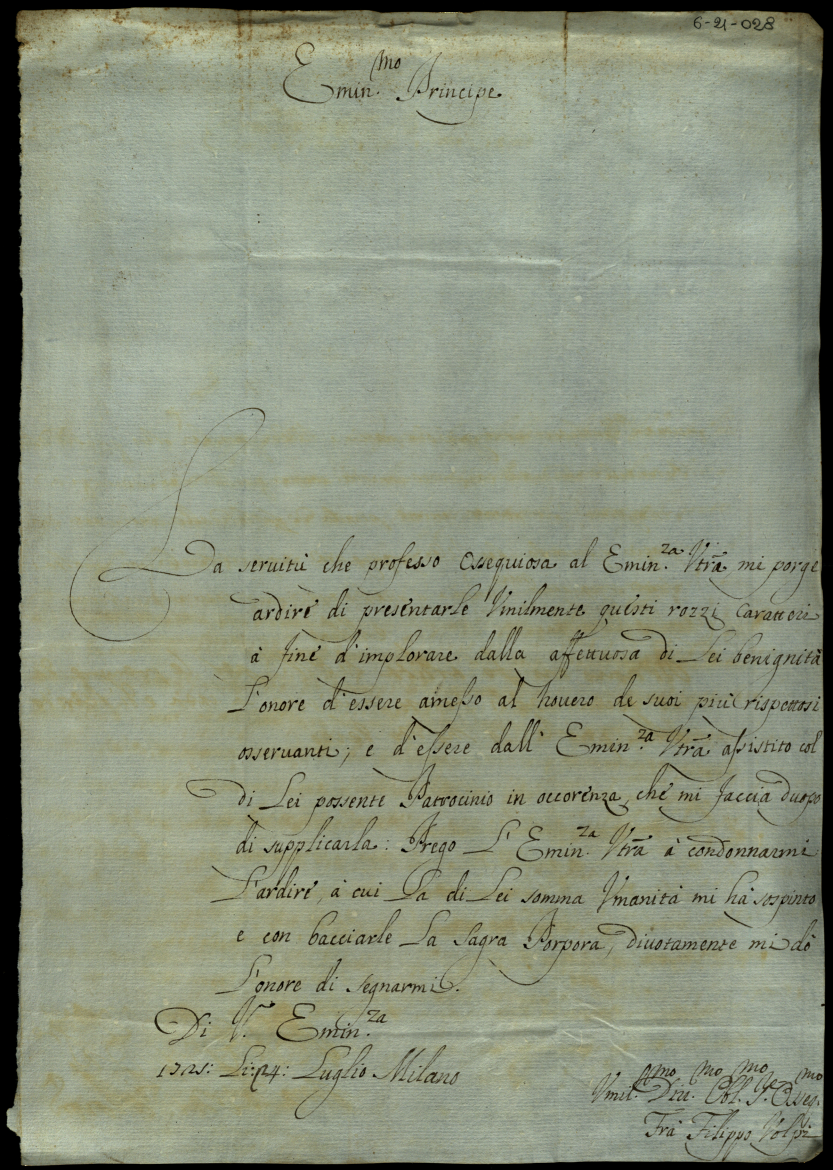 6-21-028
Emin.mo Principe
La seruitù che professo ossequiosa al Emin.za Vtrã mi porge
ardire di presentarle Vmilmente questi rozzi Caratteri
à fine d'implorare dalla affettuosa di Lei benignità
L'onore d'essere amesso al nouero de suoi più rispettosi
osseruanti; e d'essere dall' Emin.za Vtrã assistito col
di Lei possente Patrocinio in occorenza, che mi faccia duopo
di supplicarla: Prego L' Emin.za Vtrã à condonnarmi
L'ardire, à cui La di Lei somma Vmanità mi hà sospinto
e con bacciarle La Sagra Porpora, diuotamente mi dò
L'onore di segnarmi.
Di V. Emin.za
1725: Li: 24: Luglio Milano
Vmil.mo Diu.mo Obl.mo Se. Osseq.mo
Frà Filippo Volpi